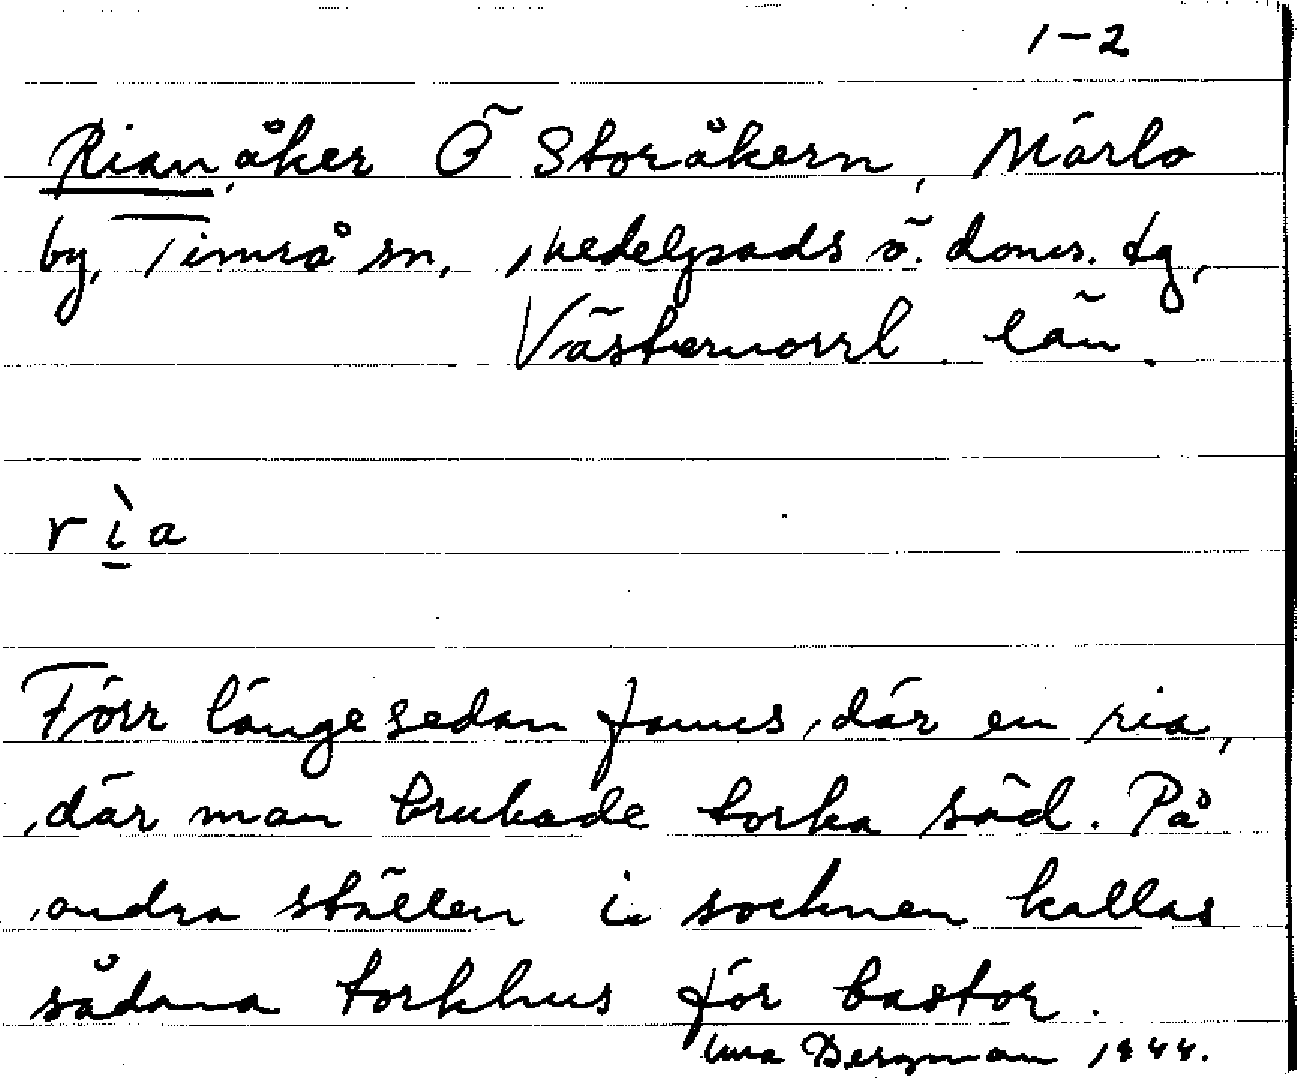 1-2
Rianåker Ö Storåkern, Märlo
by, Timrå sn, Medelpads ö. doms. tg,
Västernorrl. län.
rìa
Förr länge sedan fanns där en ria,
där man brukade torka säd. På
andra ställen i socknen kallas
sådana torkhus för bastor.
Bergman 1944.